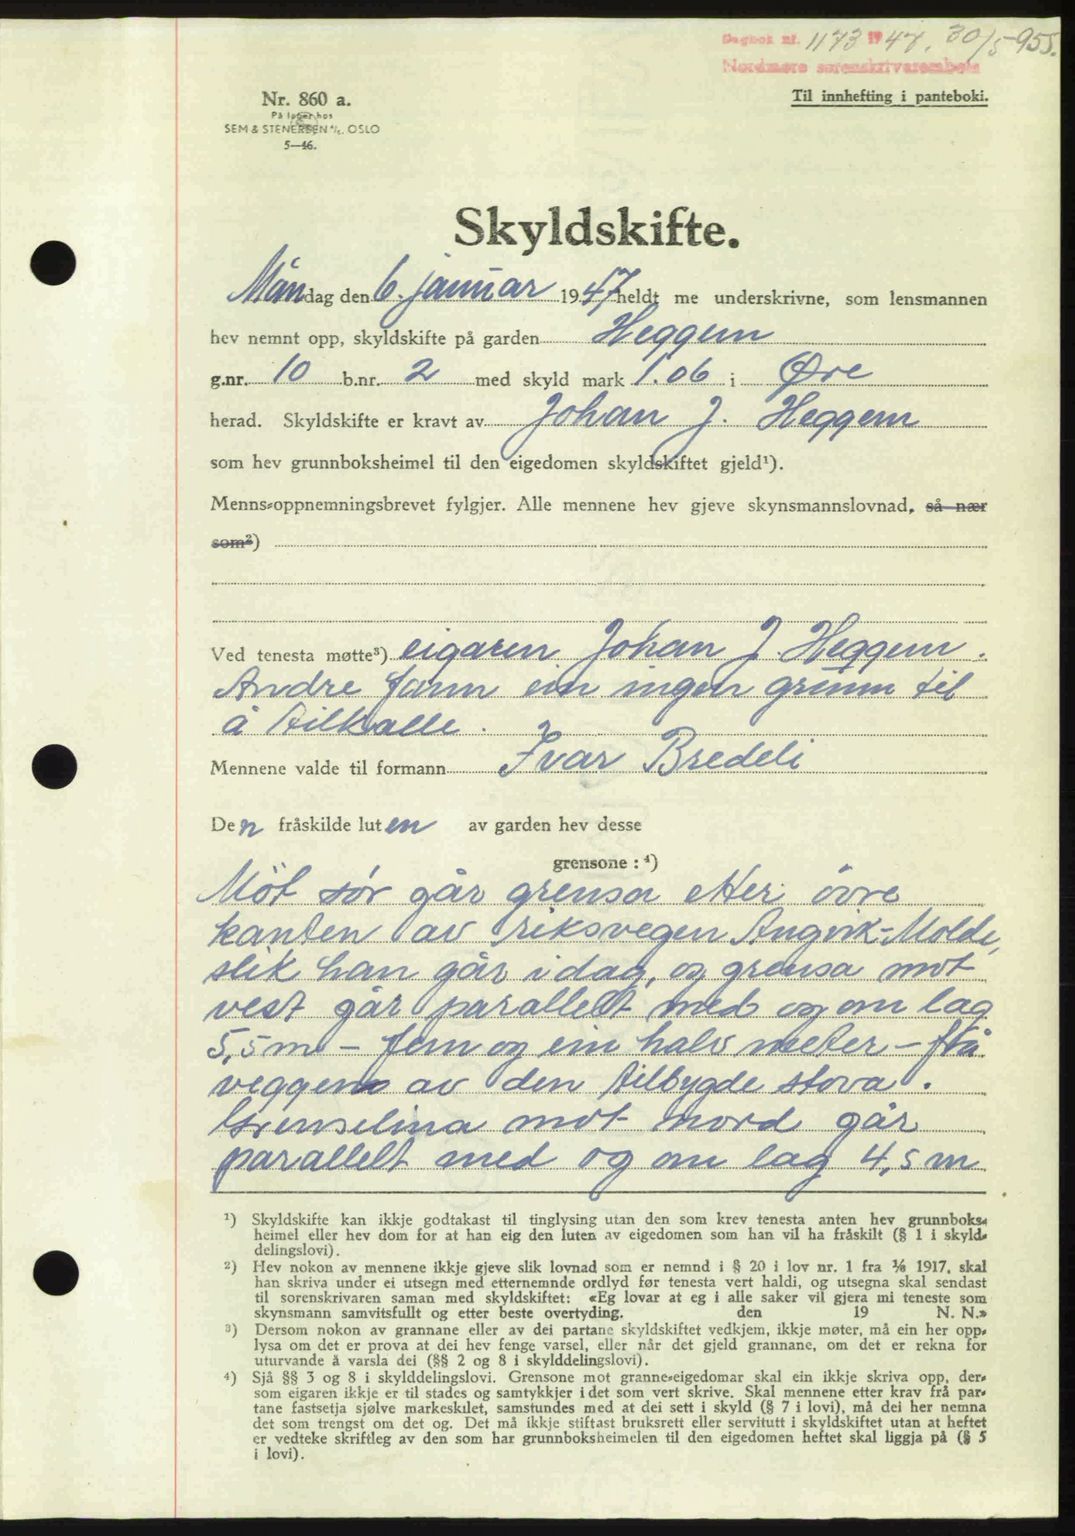 Dagbok nr. 1173 1947. 30/5-955.
Nordmøre sorenskrivarembete
Nr. 860 a.
På lager hos
SEM & STENERSEN A/S. OSLO
5—46.
Til innhefting i panteboki.
Skyldskifte.
Måndag den 6. januar 1947 heldt me underskrivne, som lensmannen
hev nemnt opp, skyldskifte på garden Heggem
g.nr. 10 b.nr. 2 med skyld mark 1.06 i Øre
herad. Skyldskifte er kravt av Johan J. Heggem
som hev grunnboksheimel til den eigedomen skyldskiftet gjeld¹).
Menns-oppnemningsbrevet fylgjer. Alle mennene hev gjeve skynsmannslovnad, så nær
som²)
Ved tenesta møtte³) eigaren Johan J. Heggem.
Andre fann ein ingen grunn til
å tilkalle.
Mennene valde til formann Ivar Bredeli
Den fråskilde luten av garden hev desse
grensone : ⁴)
Mot sør går grensa etter øvre
kanten av riksvegen Angvik-Molde,
slik han går i dag, og grensa mot
vest går parallelt med og om lag
5,5 m – fem og ein halv meter – frå
veggen av den tilbygde stova.
Grenselina mot nord går
parallelt med og om lag 4,5 m
¹) Skyldskifte kan ikkje godtakast til tinglysing utan den som krev tenesta anten hev grunnboks-
heimel eller hev dom for at han eig den luten av eigedomen som han vil ha fråskilt (§ 1 i skyld-
delingslovi).
²) Hev nokon av mennene ikkje gjeve slik lovnad som er nemnd i § 20 i lov nr. 1 fra ⅙ 1917, skal
han skriva under ei utsegn med etternemnde ordlyd før tenesta vert haldi, og utsegna skal sendast
til sorenskrivaren saman med skyldskiftet: «Eg lovar at eg i alle saker vil gjera mi teneste som
skynsmann samvitsfullt og etter beste overtyding. den 19 N. N.»
³) Dersom nokon av grannane eller av dei partane skyldskiftet vedkjem, ikkje møter, må ein her opp-
lysa om det er prova at dei hev fenge varsel, eller når det gjeld grannane, om det er rekna for
uturvande å varsla dei (§§ 2 og 8 i skylddelingslovi).
⁴) Sjå §§ 3 og 8 i skylddelingslovi. Grensone mot granne-eigedomar skal ein ikkje skriva opp, der-
som eigaren ikkje er til stades og samtykkjer i det som vert skrive. Skal mennene etter krav frå par-
tane fastsetja sjølve markeskilet, samstundes med at dei sett i skyld (§ 7 i lovi), må dei her nemna
det som trengst om det og. Det må ikkje stiftast bruksrett eller servitutt i skyldskiftet utan at heftet
er vedteke skriftleg av den som har grunnboksheimelen til den eigedomen heftet skal liggja på (§ 5
i lovi).